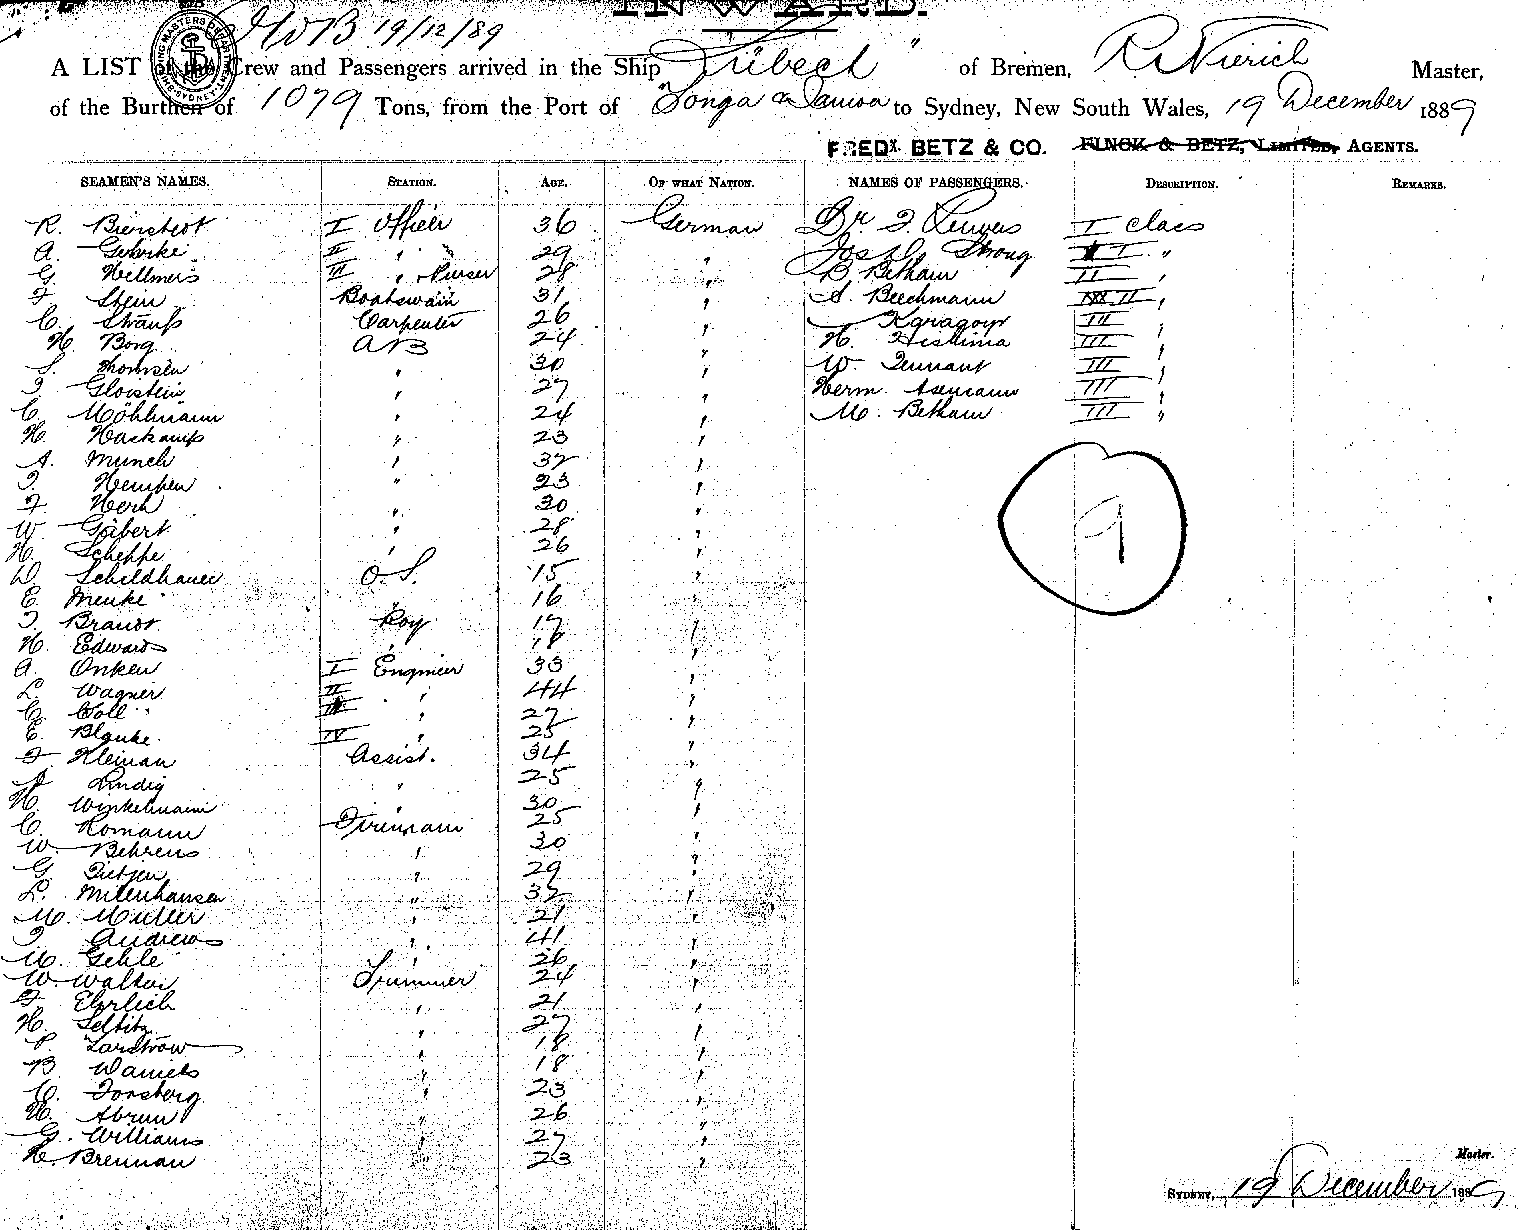 INWARD.
19/12/89
A LIST of the Crew and Passengers arrived in the Ship "Lübeck" of Bremen, R. Nierich Master,
of the Burthen of 1079 Tons, from the Port of Tonga & Samoa to Sydney, New South Wales, 19 December 1889
FREDK. BETZ & CO. FINCK & BETZ, LIMITED, AGENTS.
SEAMEN'S NAMES. STATION. AGE. OF WHAT NATION. NAMES OF PASSENGERS. DESCRIPTION. REMARKS.
R. Bierstedt I Officer 36 German Dr I class
A. Gehrke II " 29 " Strong I "
G. Hellmers III " Purser 28 " B. Betham II "
F Stein Boatswain 31 " A. Beechmann II "
C. Strauss Carpenter 26 " III "
H. Borg AB 24 " H. Hishima III "
S. Thomsen " 30 " W. Tennant III "
I. Gloistein " 27 " Herm. Assmann III "
C. Möhlmann " 24 " M. Betham III "
H. Hackamp " 23 "
A. Munch " 32 "
I. Hempen " 23 "
F. Herh " 30 "
W. Gabert " 28 "
H. Scheppe " 26 "
D. Schildhauer O.S. 15 "
E. Menke " 16 "
I. Brandt Boy 17 "
H. Edwards " 18 "
A. Onken I Engineer 33 "
L. Wagner II " 44 "
C. Coll III " 27 "
E. Blanke. IV " 25 "
F Kleinau Assist. 34 "
Lindig " 25 "
H. Winkelmann " 30 "
C. Romann Fireman 25 "
W. Behrens " 30 "
G. Tietjen " 29 "
L. Milenhausen " 32 "
M. Müller " 21 "
I. Andrews " 41 "
M. Gehle " 26 "
W. Walter Trimmer 24 "
F. Ehrlich " 21 "
H. Seltitz " 27 "
P. Lardtrow " 18 "
B. Daniels " 18 "
C. Forsberg " 23 "
H. Abrum " 26 "
G. Williams " 27 "
H. Brennan " 23 "
9
Master.
SYDNEY, 19 December 1889